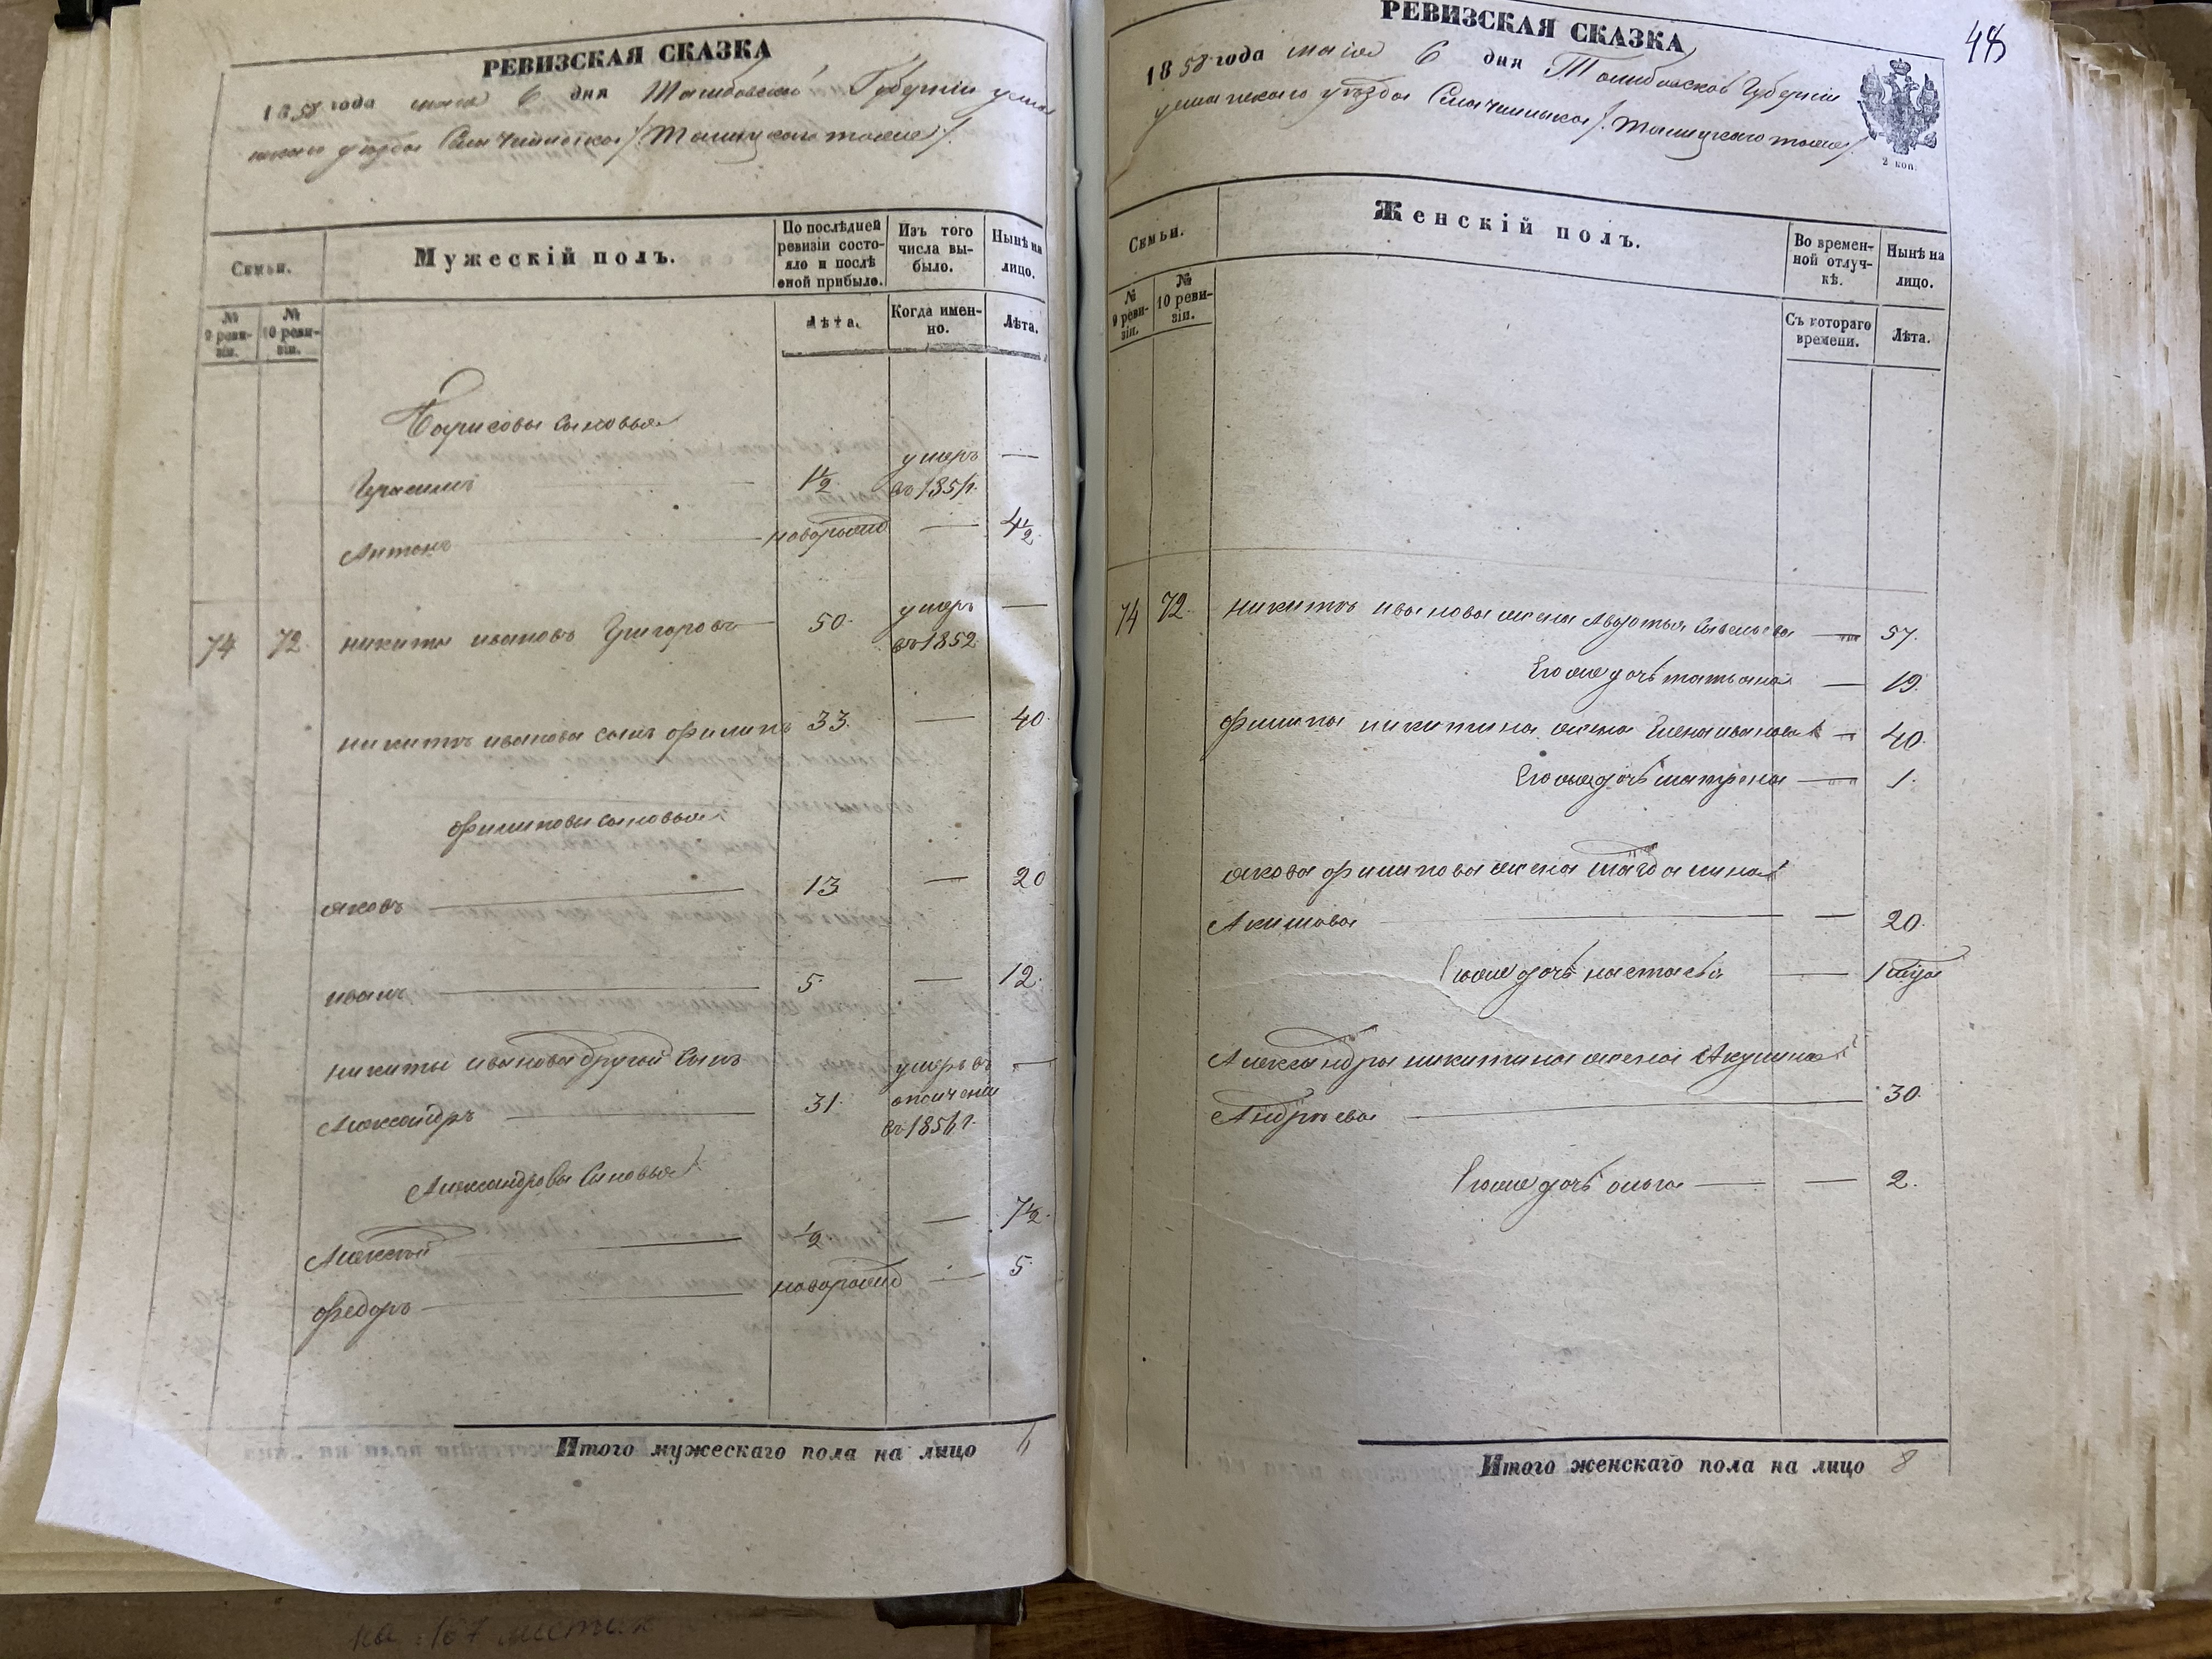 РЕВИЗСКАЯ СКАЗКА
1858 года мая 6 дня Тамбовской Губернии усман
скаго уѣзда Села Талицкаго
Семьи.
Мужескій полъ.
По послѣдней ревизіи состояло и послѣ оной прибыло.
Изъ того числа выбыло.
Нынѣ на лицо.
№ 9 ревизіи.
№ 10 ревизіи.
Лѣта.
Когда именно.
Лѣта.
Борисовы сыновья
Герасимъ 1 1/2 умеръ въ 1851 г. —
Антонъ новорожд — 4 1/2
74 72 никита ивановъ Григоровъ 50 умеръ въ 1852 —
никиты иванова сынъ филипъ 33 — 40
филиповы сыновья
яковъ 13 — 20
иванъ 5 — 12
никиты иванова другой сынъ
Александръ 31 умеръ въ ополчении —
Александровы сыновья
Алексѣй 1/2 — 7 1/2
федоръ новорожд — 5
Итого мужескаго пола на лицо 6
на 167 листах
48
РЕВИЗСКАЯ СКАЗКА
1858 года мая 6 дня Тамбовской Губернии
усманскаго уѣзда Села
2 коп.
Семьи.
Женскій полъ.
Во временной отлучкѣ.
Нынѣ на лицо.
№ 9 ревизіи.
№ 10 ревизіи.
Съ котораго времени.
Лѣта.
74 72 никиты иванова жена Авдотья Савельева — 57
Его же дочь татьяна — 19
филипа никитина жена Елена иванова — 40
Его же дочь матрена — 1
якова филипова жена магдалина
Акимова — 20
Его же дочь настасья — 1
Александра никитина жена Акулина
Андрѣева 30
Его же дочь ольга — 2
Итого женскаго пола на лицо 8